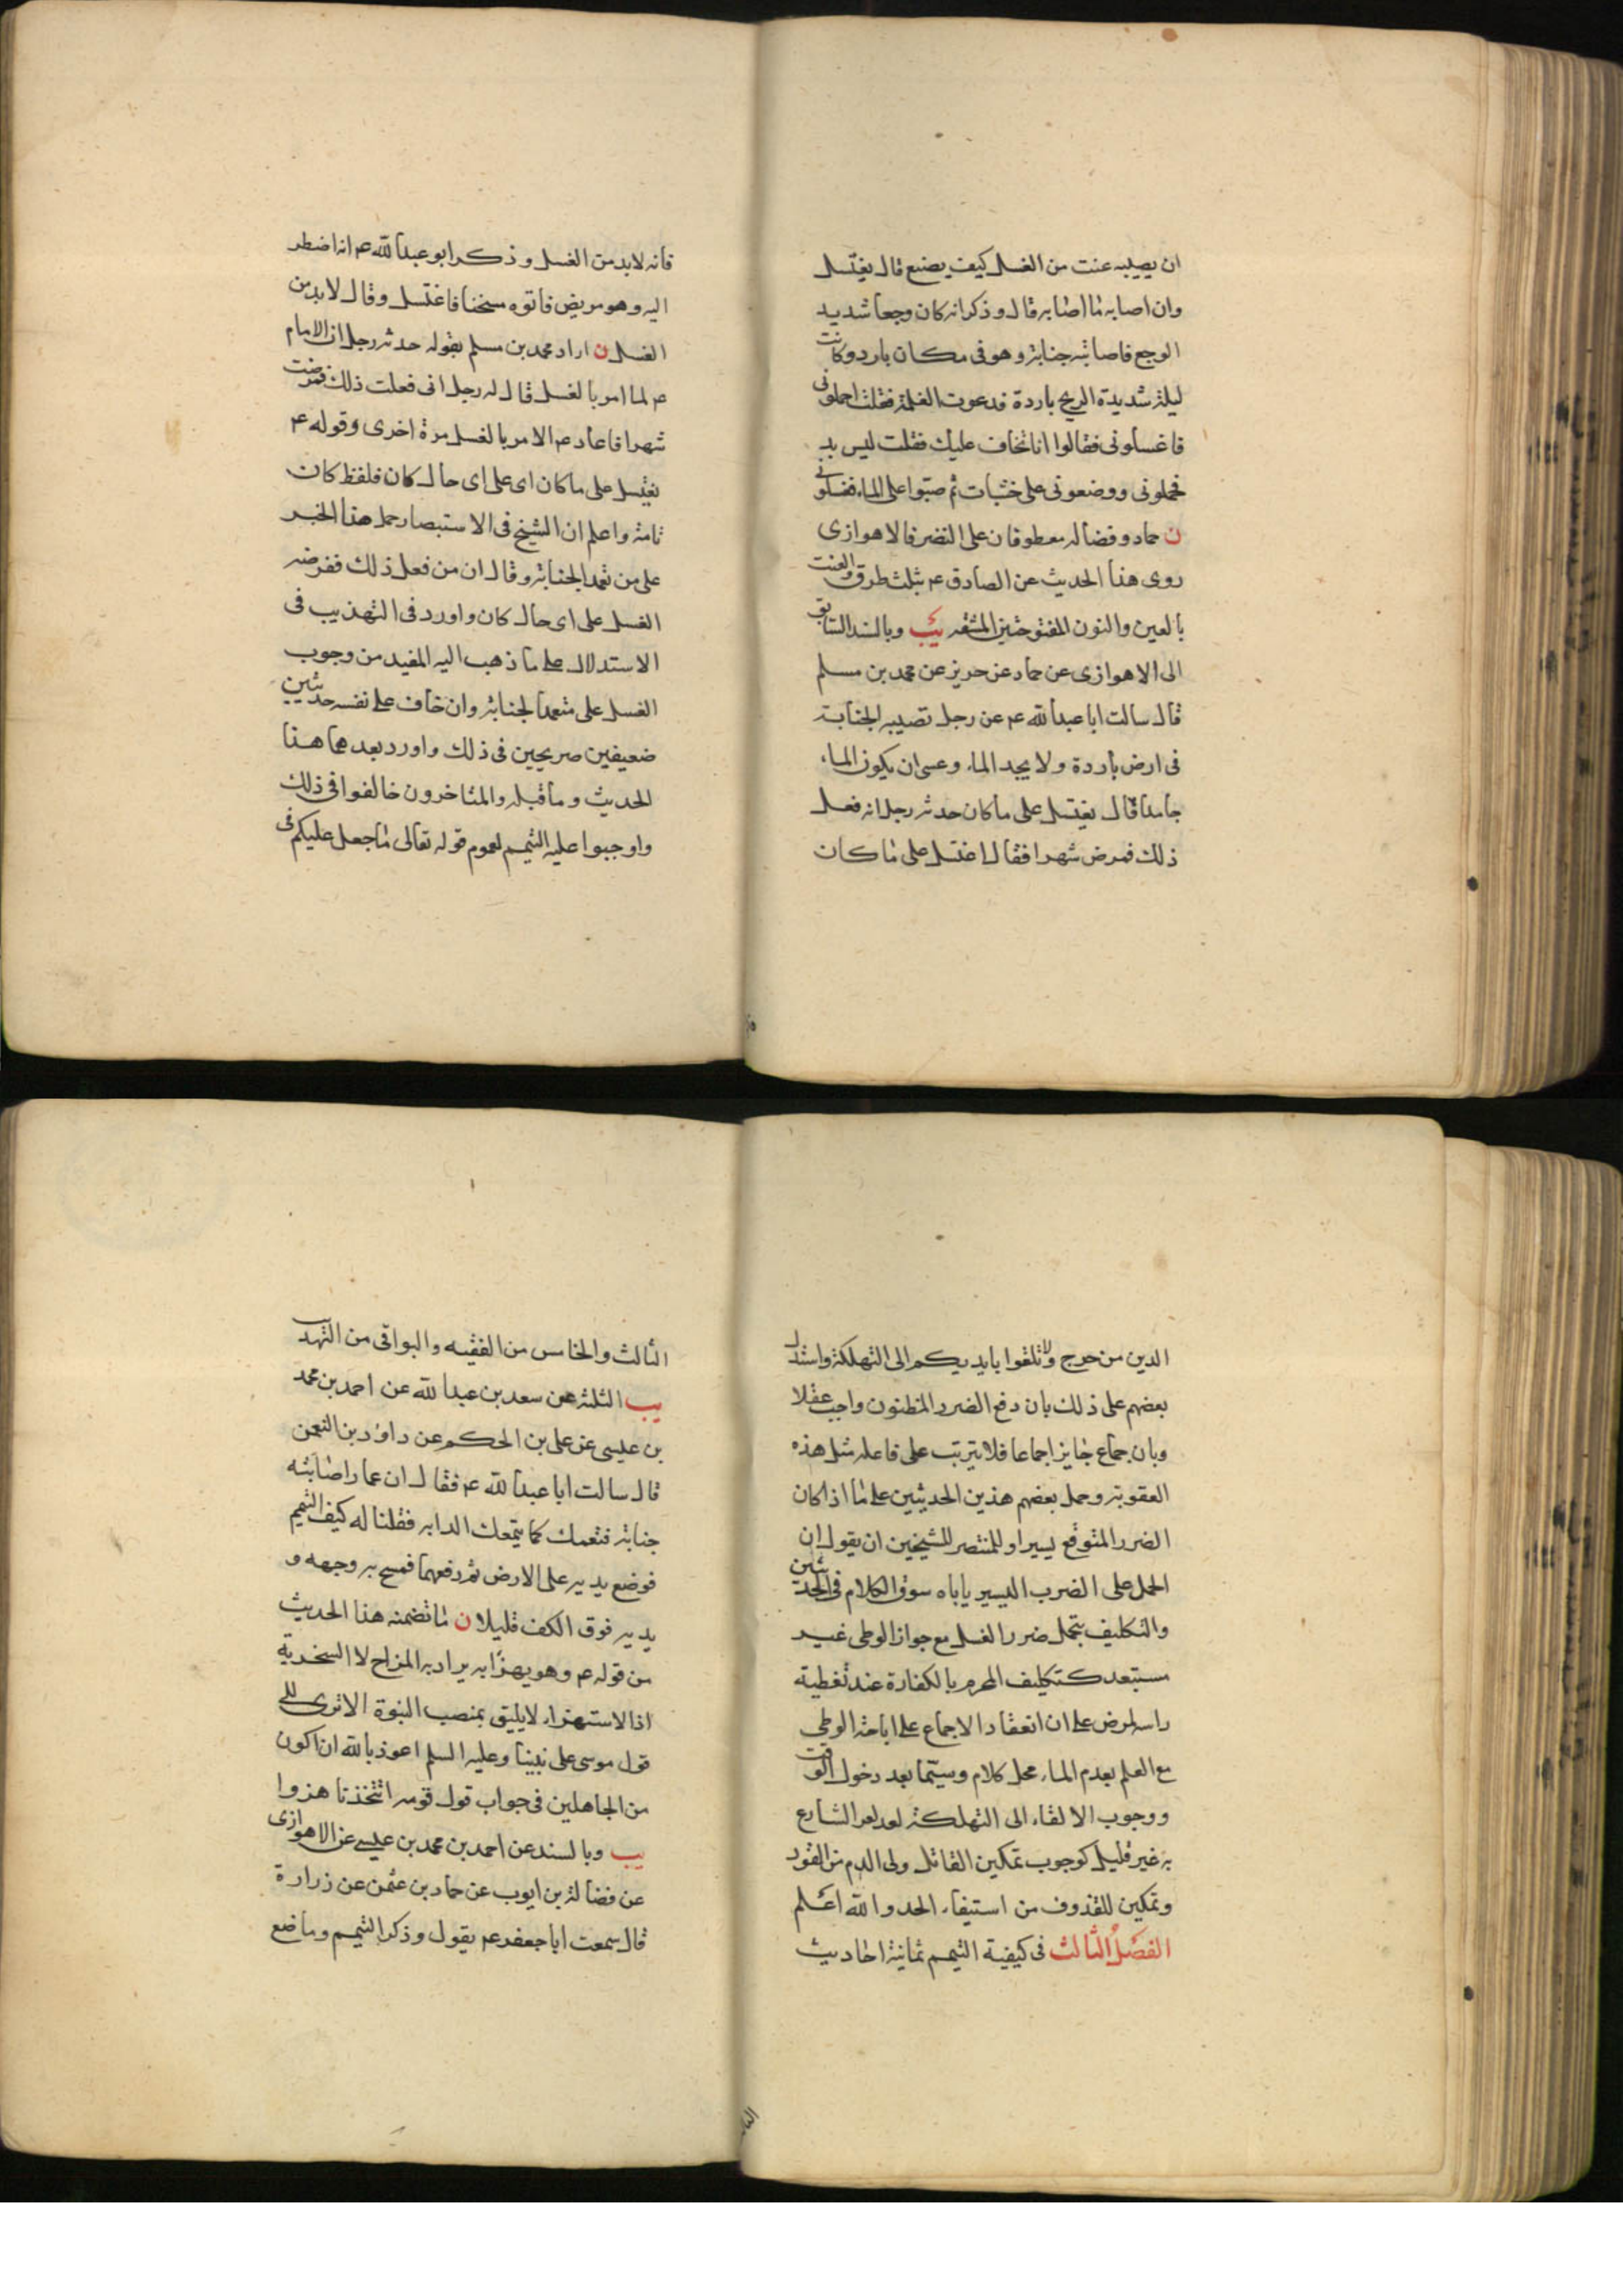 ان يصيبه عنت من الغسل كيف يصنع قال يغتسل
وان اصابه ما اصابه قال وذكر انه كان وجعا شديد
الوجع فاصابته جنابة وهو فى مكان بارد وكانت
ليلة شديدة الريح باردة فدعوت الغلمة فقلت احملونى
فاغسلونى فقالوا انا نخاف عليك فقلت ليس بد
فحملونى ووضعونى على خشبات ثم صبوا على الماء فغسلونى
ن حماد وفضاله معطوفان على النضر فالاهوازى
روى هذا الحديث عن الصادق ع بثلث طرق والعنت
بالعين والنون المفتوحتين المشقه يب وبالسند السابق
الى الاهوازى عن حماد عن حريز عن محمد بن مسلم
قال سالت ابا عبد الله ع عن رجل تصيبه الجنابة
فى ارض باردة ولا يجد الماء وعسى ان يكون الماء
جامدا قال يغتسل على ما كان حدثه رجل انه فعل
ذلك فمرض شهرا فقال اغتسل على ما كان
فانه لابد من الغسل وذكر ابو عبد الله ع انه اضطر
اليه وهو مريض فاتوه مسخنا فاغتسل وقال لابد من
الغسل ن اراد محمد بن مسلم بقوله حدثه رجل ان الامام
ع لما امر بالغسل قال له رجل انى فعلت ذلك فمرضت
شهرا فاعاد ع الامر بالغسل مرة اخرى وقوله ع
يغتسل على ما كان اى على اى حال كان فلفظ كان
تامة واعلم ان الشيخ فى الاستبصار حمل هذا الخبر
على من تعمد الجنابة وقال ان من فعل ذلك ففرضه
الغسل على اى حال كان واورد فى التهذيب فى
الاستدلال على ما ذهب اليه المفيد من وجوب
الغسل على متعمد الجنابة وان خاف على نفسه حديثين
ضعيفين صريحين فى ذلك واورد بعدهما هذا
الحديث وما قبله والمتاخرون خالفوا فى ذلك
واوجبوا عليه التيمم لعموم قوله تعالى ما جعل عليكم فى
الدين من حرج ولا تلقوا بايديكم الى التهلكة واستدل
بعضهم على ذلك بان دفع الضرر المظنون واجب عقلا
وبان جماع جايز اجماعا فلا يترتب على فاعله مثل هذه
العقوبة وحمل بعضهم هذين الحديثين على ما اذا كان
الضرر المتوقع يسيرا وللمنتصر للشيخين ان يقول ان
الحمل على الضرب اليسير ياباه سوق الكلام فى الحديثين
والتكليف بتحمل ضرر الغسل مع جواز الوطى غير
مستبعد كتكليف المحرم بالكفارة عند تغطية
راسه لمرض على ان انعقاد الاجماع على اباحة الوطى
مع العلم بعدم الماء محل كلام وسيتما بعد دخول الوقت
ووجوب الالقاء الى التهلكة لعد امر الشارع
به غير قليل كوجوب تمكين القاتل ولى الدم من القود
وتمكين للقذوف من استيفاء الحد والله اعلم
الفصل الثالث فى كيفية التيمم ثمانية احاديث
الثالث والخامس من الفقيه والبواقى من التهذيب
يب الثلثة عن سعد بن عبد الله عن احمد بن محمد
بن عيسى عن على بن الحكم عن داود بن النعمن
قال سالت ابا عبد الله ع فقال ان عمارا اصابته
جنابة فتمعك كما يتمعك الدابه فقلنا له كيف التيمم
فوضع يديه على الارض ثم رفعهما فمسح به وجهه و
يديه فوق الكف قليلا ن ما تضمنه هذا الحديث
من قوله ع وهو يهزأ به يراد به المزاح لا السخرية
اذ الاستهزاء لا يليق بمنصب النبوة الا ترى الى
قول موسى على نبينا وعليه السلم اعوذ بالله ان اكون
من الجاهلين فى جواب قول قومه اتتخذنا هزوا
يب وبالسند عن احمد بن محمد بن عيسى عن الاهوازى
عن فضالة بن ايوب عن حماد بن عثمن عن زرارة
قال سمعت ابا جعفر ع يقول وذكر التيمم وما صنع